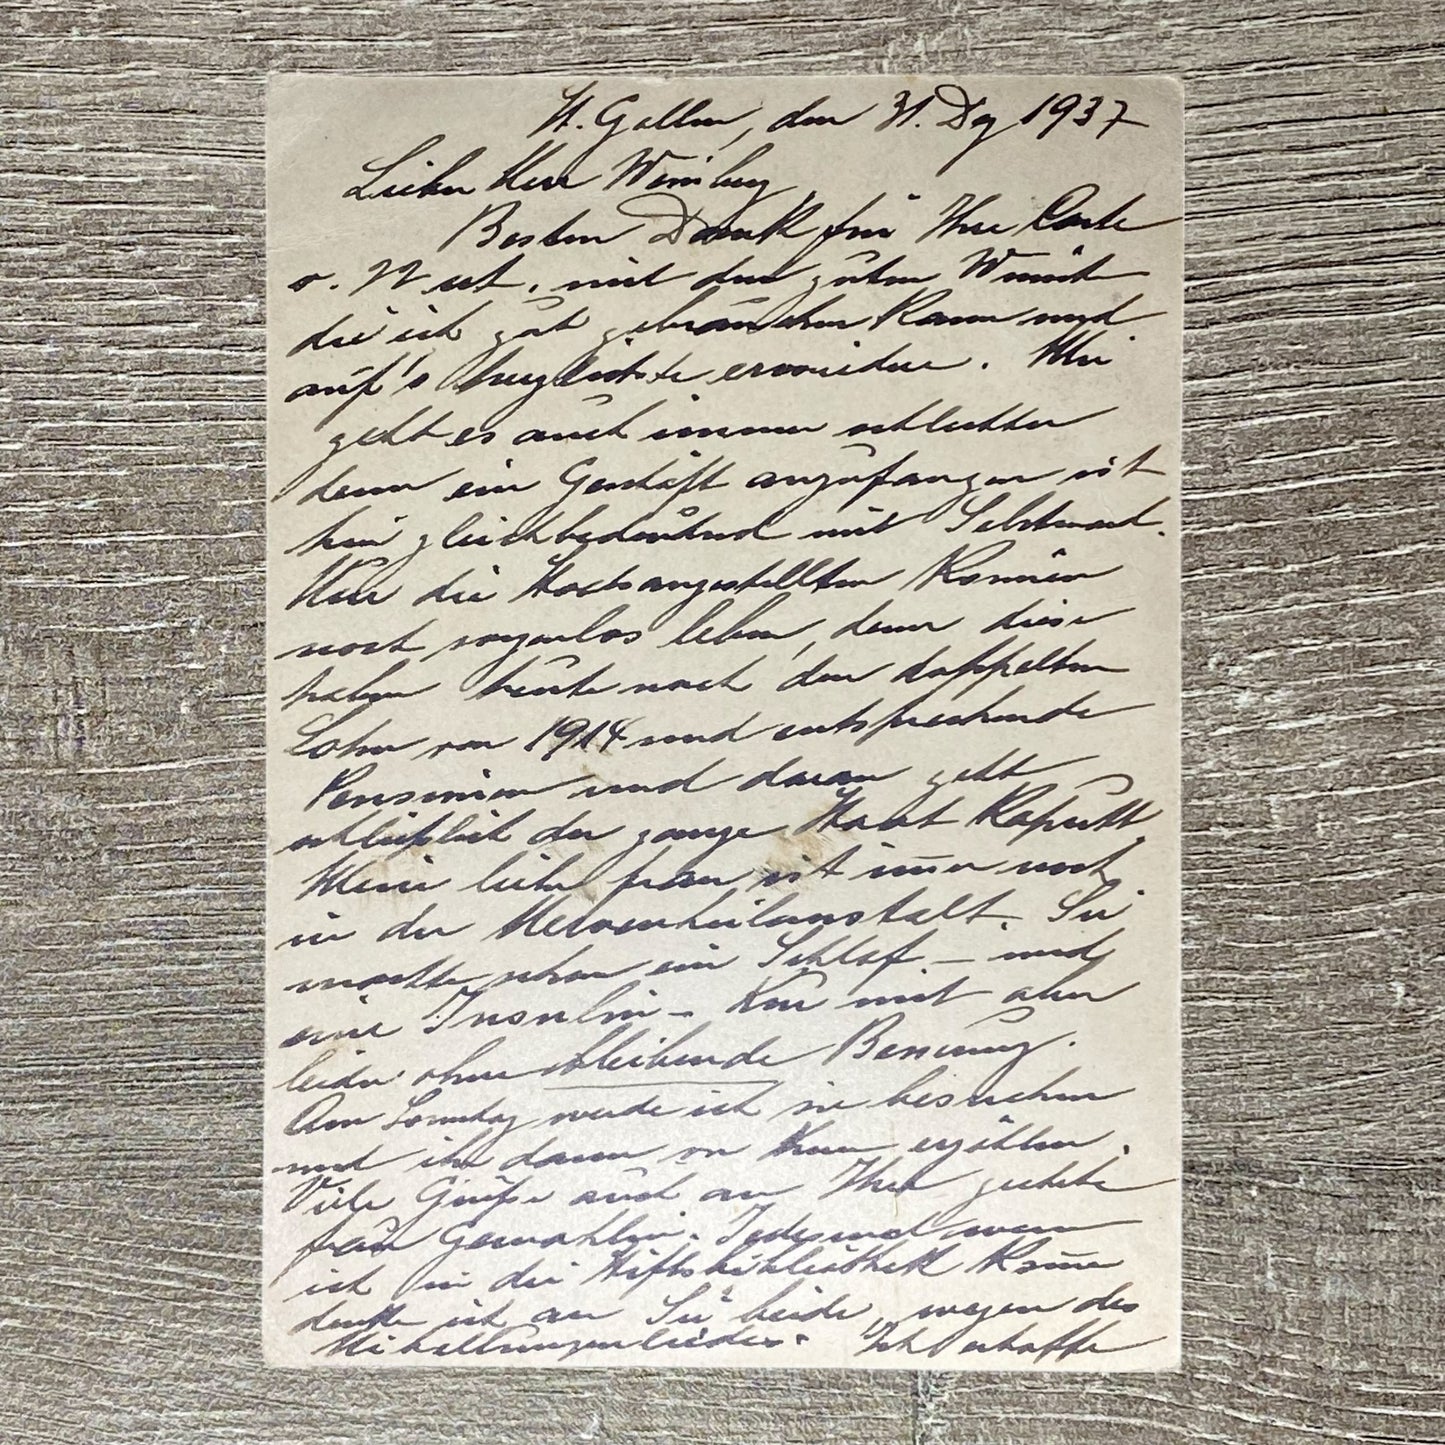 St. Gallen, den 31. Dez 1937
Lieber Herr Weinberg
Besten Dank für Ihre Carte
v. West. mit den guten Wünsch
die ich gut gebrauchen kann und
auf's herzlichste erwiedere. Mir
geht es auch immer schlechter
denn ein Geschäft anzufangen ist
hier gleichbedeutend mit Selbstmord.
Nur die Staatsangestellten können
noch sorgenlos leben, denn diese
haben heute noch den doppelten
Lohn von 1914 und entsprechende
Pensionen und daran geht
schließlich der ganze Staat kaputt.
Meine liebe Frau ist immer noch
in der Nervenheilanstalt. Sie
machte schon ein Schlaf – und
eine Insulin – Kur mit aber
leider ohne bleibende Besserung.
Am Sonntag werde ich sie besuchen
und ihr dann von Ihnen erzählen.
Viele Grüße auch an Ihre geehrte
Frau Gemahlin. Jedesmal wenn
ich in die Stiftsbibliothek komme
denke ich an Sie beide, wegen des
Nibellungenliedes. Ich schaffe